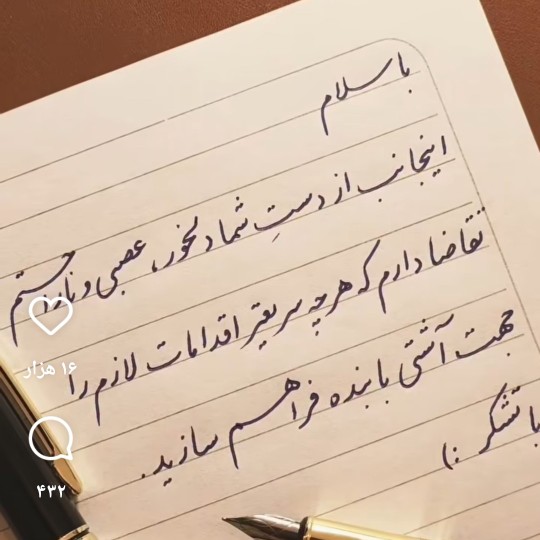 باسلام
اینجانب از دستِ شما دلخور، عصبی و ناراحتم
تقاضا دارم که هرچه سریعتر اقدامات لازم را
جهت آشتی با بنده فراهم سازید.
با تشکر :)
۱۶ هزار
۴۳۲